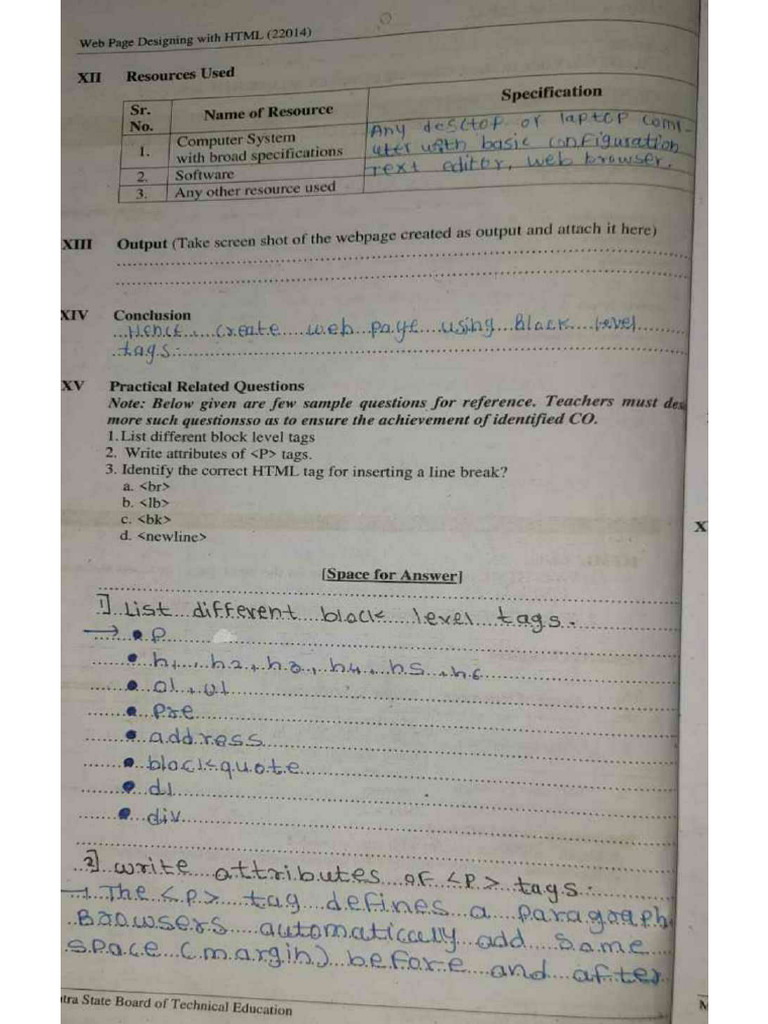 Web Page Designing with HTML (22014)
XII Resources Used
Sr. No. Name of Resource Specification
1. Computer System with broad specifications Any desctop or laptop com-
uter with basic configuration
2. Software Text editor, web browser.
3. Any other resource used
XIII Output (Take screen shot of the webpage created as output and attach it here)
XIV Conclusion
Hence, create web page using Black level
tags.
XV Practical Related Questions
Note: Below given are few sample questions for reference. Teachers must des
more such questionsso as to ensure the achievement of identified CO.
1. List different block level tags
2. Write attributes of <P> tags.
3. Identify the correct HTML tag for inserting a line break?
a. <br>
b. <lb>
c. <bk>
d. <newline>
[Space for Answer]
1] List different block level tags.
→ • P
• h1, h2, h3, h4, h5, h6
• ol, ul
• Pre
• address
• blockquote
• dl
• div
2] write attributes of <P> tags.
→ The <P> tag defines a paragraph
Browsers automatically add some
space (margin) before and after
tra State Board of Technical Education
X
M